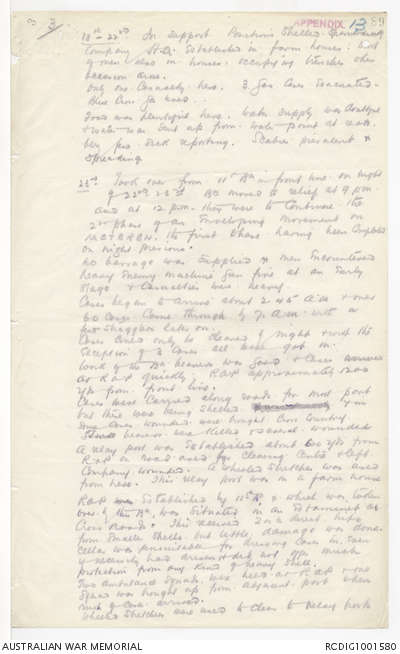 3
APPENDIX 13 89
18th - 22nd In support Positions Shelled
Company H.Q. Established in farm houses. Most
of men also in houses, occupying trenches when
occasion arose.
Only one Casualty here. 3 Gas Cases Evacuated.
Blue Cross Gas used.
Food was plentiful here. Water Supply was doubtful
& water was sent up from water point at rear.
Very few sick reporting. Scabies prevalent &
Spreading
23rd. Took over from 11th Bn in front line on night
of 22nd - 23rd. Bn moved to relief at 9 pm
and at 12 pm they were to continue the
2nd phase of an Enveloping movement on
METEREN, the first phase having been completed
on night previous.
No barrage was Supplied & men Encountered
heavy Enemy machine gun fire at an Early
Stage & Casualties were heavy.
Cases began to arrive about 2.45 A.m. & over
60 Cases Came through by 7 A.m. with a
few stragglers later on.
Cases could only be cleared by night & with the
Exception of 3 Cases all were got in.
Work of the Bn bearers was good & Cases arrived
at RAP quickly. RAP approximately 1200
yds from front line.
Cases were Carried along roads for most part
but this was being shelled & in
some Cases wounded were brought Cross Country
bearers were killed & several wounded
A relay post was Established about 600 yds from
RAP on road used for Clearing Centre & left
Company wounded. A wheeled Stretcher was used
from here. This relay post was in a farm house
RAP was Established by 11th Bn & which was taken
over by the Bn, was Situated in an Estaminet at
Cross Roads. This received 2 or 3 direct hits
from Smaller Shells but little damage was done.
Cellar was procurable for dressing Cases in, Even
if necessity had arisen & did not give much
protection from any kind of heavy Shell.
Two Ambulance Squads were held at RAP & one
Squad was brought up from adjacent post when
rush of Cases arrived.
Wheeled Stretcher were used to Clear to Relay Posts
AUSTRALIAN WAR MEMORIAL
RCDIG1001580